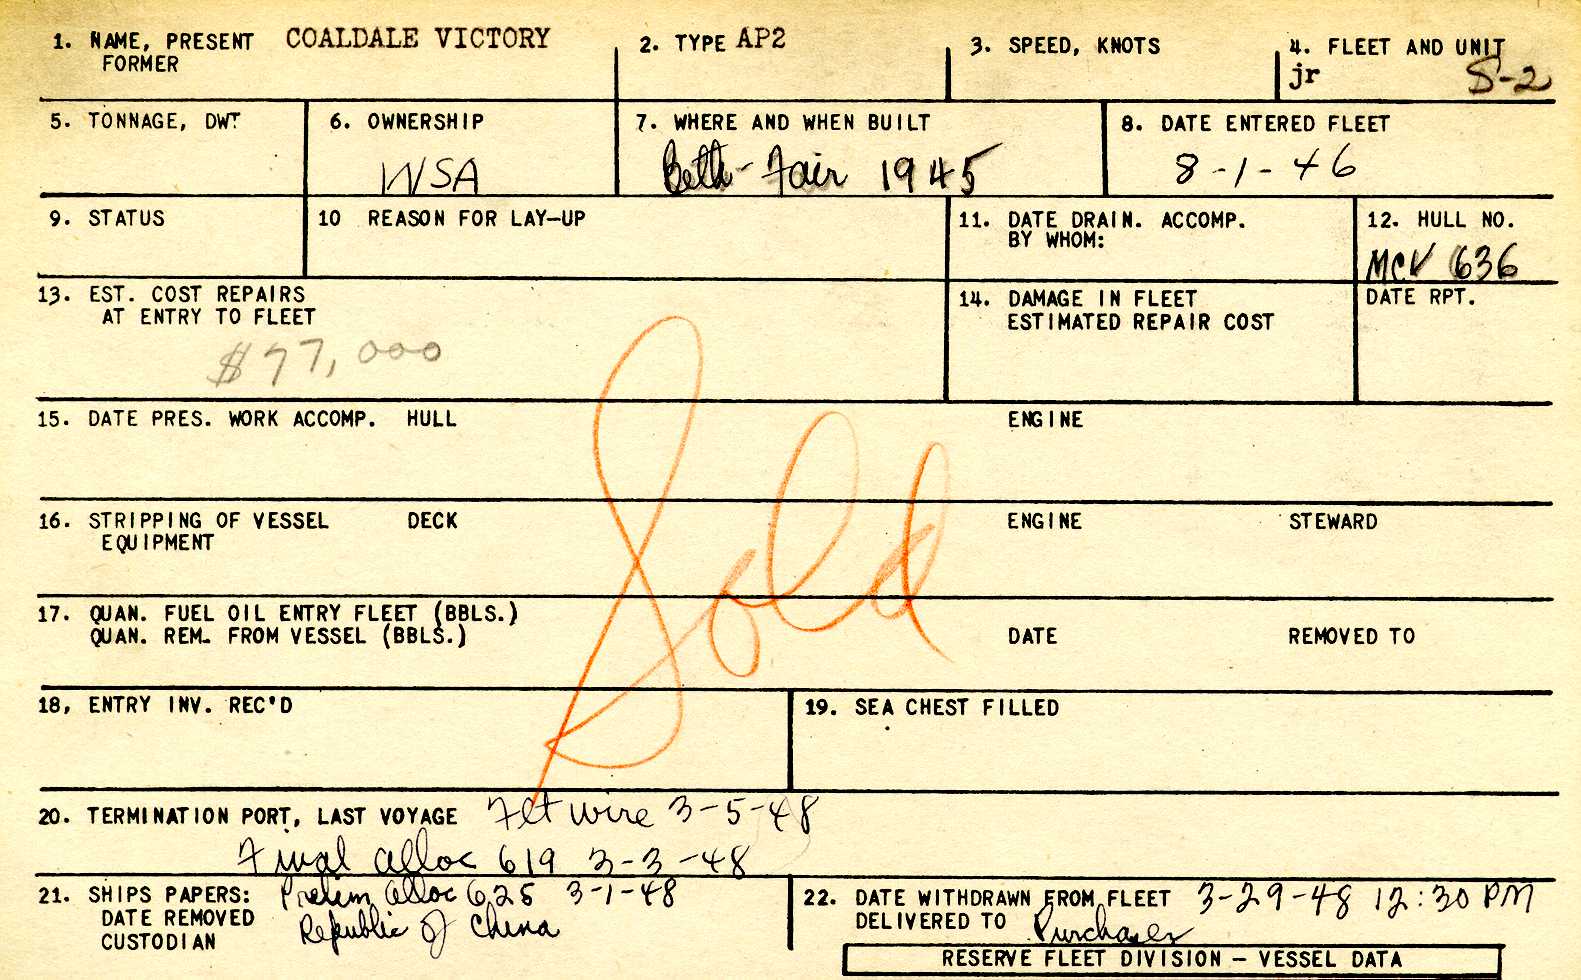 1. NAME, PRESENT COALDALE VICTORY
FORMER
2. TYPE AP2
3. SPEED, KNOTS
4. FLEET AND UNIT
jr S-2
5. TONNAGE, DWT
6. OWNERSHIP
WSA
7. WHERE AND WHEN BUILT
Beth-Fair 1945
8. DATE ENTERED FLEET
8-1-46
9. STATUS
10 REASON FOR LAY-UP
11. DATE DRAIN. ACCOMP.
BY WHOM:
12. HULL NO.
MCV 636
13. EST. COST REPAIRS
AT ENTRY TO FLEET
$77,000
14. DAMAGE IN FLEET
ESTIMATED REPAIR COST
DATE RPT.
Sold
15. DATE PRES. WORK ACCOMP. HULL ENGINE
16. STRIPPING OF VESSEL DECK ENGINE STEWARD
EQUIPMENT
17. QUAN. FUEL OIL ENTRY FLEET (BBLS.)
QUAN. REM. FROM VESSEL (BBLS.) DATE REMOVED TO
18, ENTRY INV. REC'D
19. SEA CHEST FILLED
20. TERMINATION PORT, LAST VOYAGE Flt wire 3-5-48
Final alloc 619 3-3-48
21. SHIPS PAPERS: Prelim alloc 625 3-1-48
DATE REMOVED Republic of China
CUSTODIAN
22. DATE WITHDRAWN FROM FLEET 3-29-48 12:30 PM
DELIVERED TO Purchaser
RESERVE FLEET DIVISION - VESSEL DATA